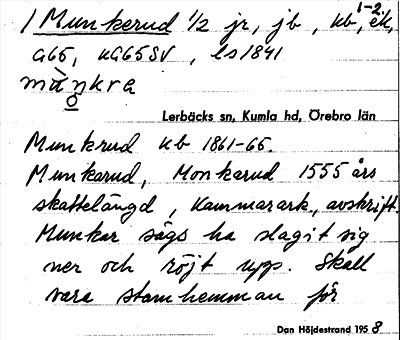 1 Munkerud 1/2 jr, jb, kb 1-2, ek,
G65, KG65SV, ls 1841
mùnkra
Lerbäcks sn, Kumla hd, Örebro län
Munkrud kb 1861-65.
Munkarud, Monkarud 1555 års
skattelängd, Kammarark., avskrift.
Munkar sägs ha slagit sig
ner och röjt upp. Skall
vara stamhemman för
Dan Höjdestrand 1958